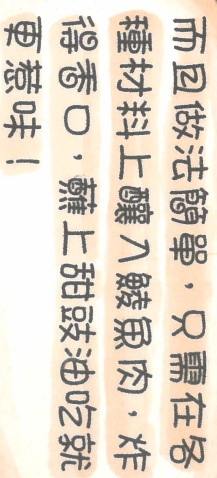 而且做法簡單，只需在各
種材料上釀入鯪魚肉，炸
得香口，蘸上甜豉油吃就
更惹味！